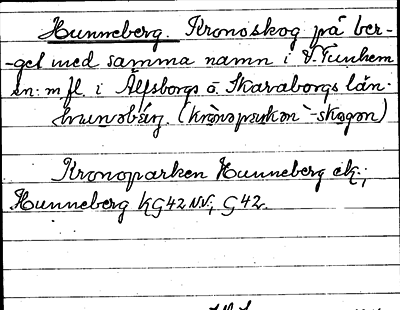 Hunneberg. Kronoskog på ber-
-get med samma namn i V. Tunhem
sn. m fl. i Älfsborgs o. Skaraborgs län.
(krònopærkən -skogən)
Kronoparken Hunneberg ek.;
Hunneberg KG42NV; G42.